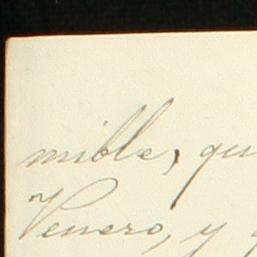 mible, qu
Venero, y